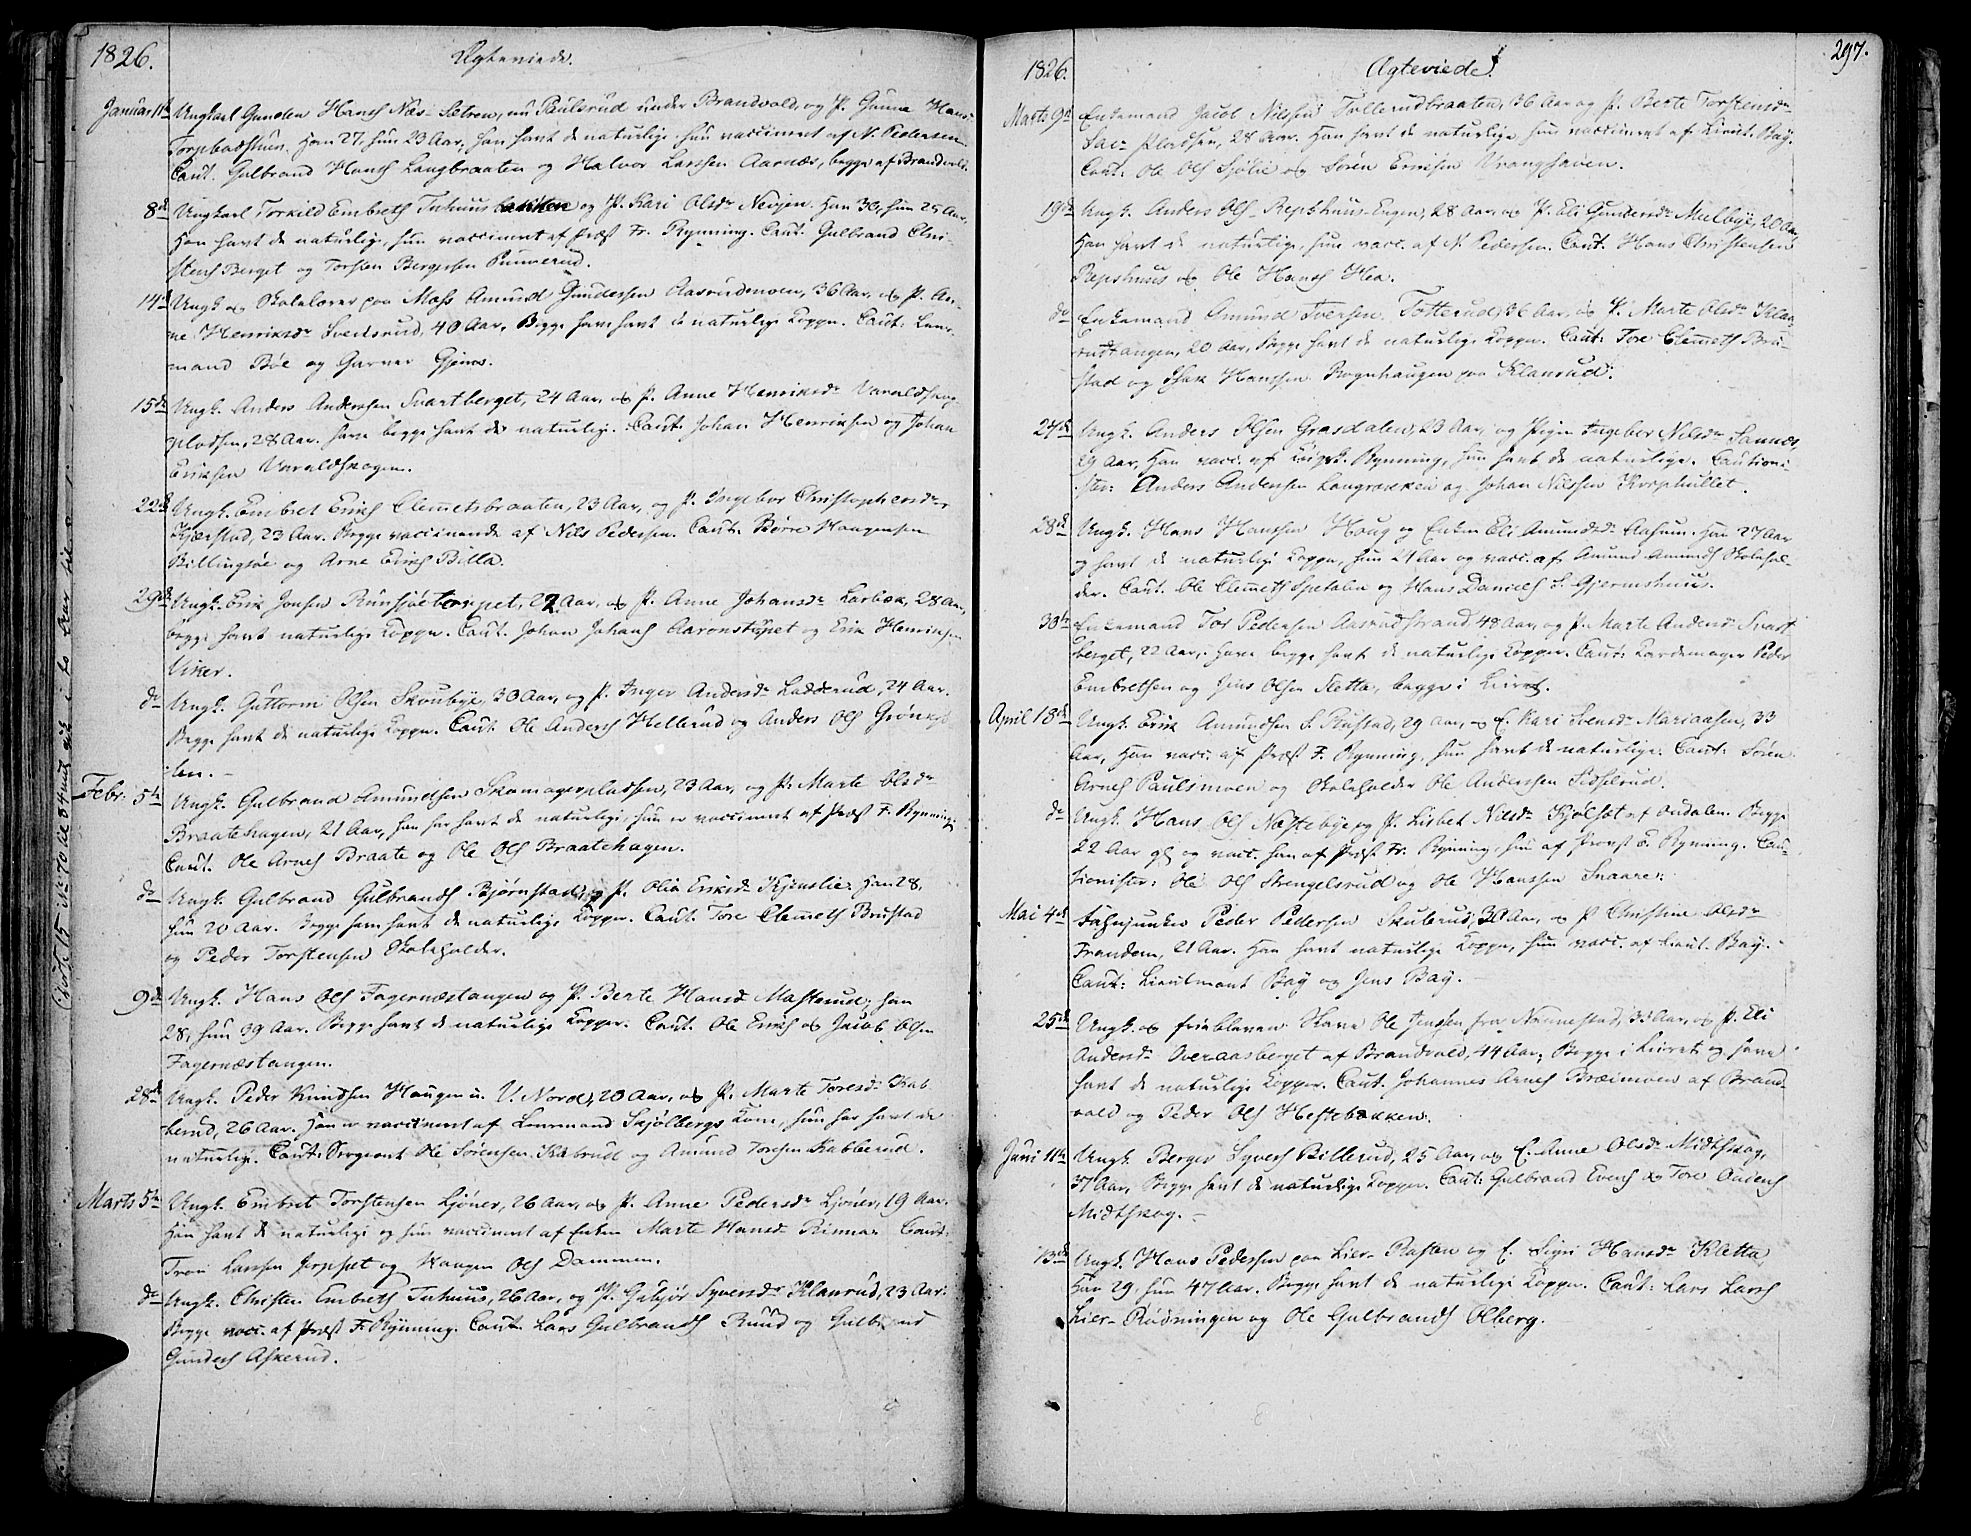 1826.
Ægteviede.
Januar 1ste Ungkarl Gunder Hansen Næs-Sætren, nu Paulsrud under Brandvold, og P. Gunna Hans-
Torpbadstun. Han 27, hun 23 Aar, han havt de naturlige hun vaccineret af N. Pedersen.
Caut. Gulbrand Hansen Langbraaten og Halvor Larsen Aarnæs, begge af Brandvold.
8de Ungkarl Torkild Embretsen Tuhuus og P. Kari Olsdr. Nevjen. Han 30, hun 25 Aar,
Han havt de naturlige, hun vaccineret af Præst Fr. Rynning. Caut. Gulbrand Chri-
stens. Berget og Torsten Bergersen Pumerud.
14de Ungk. og Skolelærer paa Moss Amund Gundersen Aasrudmoen, 36 Aar, og P. An-
ne Henriksdr. Svedsrud, 40 Aar, Begge have havt de naturlige Kopper. Caut: Lens-
mand Bøe og Garver Gjems.
15de Ungk. Anders Andersen Svartberget, 24 Aar, og P. Anne Henriksdr. Varaldskog-
pladsen, 28 Aar. have begge havt de naturlige. Caut: Johan Henriksen og Johan
Eriksen Varaldskogen.
22de Ungk. Embret Ericks. Clemetsbraaten, 23 Aar, og P. Ingebor Christophersdr.
Kjærstad, 23 Aar. Begge vaccinerede af Nils Pedersen. Caut. Børre Haagensen
Billingsøe og Arne Ericks. Billa.
29de Ungk. Erik Jonsen Runsjøetorpet, 22 Aar, og P. Anne Johansdr. Lærbek, 28 Aar,
begge havt naturlige Kopper. Caut. Johan Johans. Aaronstorpet og Erik Henriksen
Viker.
do Ungk. Guttorm Olsen Skoubye, 30 Aar, og P. Inger Andersdr. Ladderud, 24 Aar.
Begge havt de naturlige Kopper. Caut. Ole Anders. Hellerud og Anders Ols.
ten. -
Febr: 5te Ungk. Gulbrand Amundsen Skomagerpladsen, 23 Aar, og P. Marte Olsdr.
Braatehagen, 21 Aar, han har havt de naturlige, hun er vaccineret af Præst F. Rynning.
Caut. Ole Arnes. Braate og Ole Ols. Braatehagen.
do Ungk. Gulbrand Gulbrands. Bjørnstad, og P. Olia Eriksdr. Kjenslie. Han 28,
hun 20 Aar. Begge have havt de naturlige Kopper. Caut. Tore Clemets. Brustad
og Peder Torstensen Skoleholder.
9de Ungk. Hans Ols. Fagernæstangen og P. Berte Hansdr. Masterud, han
28, hun 39 Aar. Begge havt de naturlige Kopper. Caut. Ole Ericks. og Jacob Olsen
Fagernæstangen.
28de Ungk. Peder Knudsen Haugen u. V. Nord, 20 Aar, og P. Marte Toresdr. Kab-
berud, 26 Aar. Han er vaccineret af Lensmand Skjølbergs Kone, hun har havt de
naturlige. Caut: Sergeant Ole Sørensen Kabrud og Amund Toresen Kabberud.
Marts 5te Ungk. Embret Torstensen Ljøner, 26 Aar, og P. Anne Pedersdr. Ljøner, 19 Aar.
Han havt de naturlige og hun vaccineret af Enken Marte Hansdr. Rismar. Caut:
Tron Larsen Jerpset og Haagen Ols. Dammen.
do Ungk. Christen Embrets. Tuhuus, 26 Aar, og P. Gubjør Syversdr. Klanrud, 23 Aar:
Begge vacc. af Præst F. Rynning. Caut. Lars Gulbrands. Ruud og Gulbrand
Gunders. Askerud. -
297.
1826.
Ægteviede.
Marts 9de Enkemand Jacob Nilsen Tullerudbraaten, 36 Aar og P. Berte Torstensdr.
Sæ-Pladsen, 28 Aar. Han havt de naturlige, hun vaccineret af Lieut. Bay.
Caut: Ole Ols. Sjølie og Søren Ericksen Vranghaven.
19de Ungk. Anders Ols. Repshuus-Engen, 28 Aar, og P. Eli Gundersdr. Mulbye, 20 Aar.
Han havt de naturlige, hun vacc. af N. Pedersen. Caut. Hans Christensen
Repshuus og Ole Hans. Hea.
do Enkemand Amund Iversen Totterud, 36 Aar, og P. Marte Olsdr. Klan-
rudtangen, 20 Aar, Begge havt de naturlige Kopper. Caut: Tore Clemets. Bru-
stad og Isak Hanssen Rognhaugen paa Klanrud.
27de Ungk. Anders Olsen Grasdalen, 23 Aar, og Pigen Ingebor Nilsdr. Sannæs,
29 Aar, Han vacc. af Rynning, hun havt de naturlige. Cautioni-
ster: Anders Andersen Langrækken og Johan Nilssen Korphullet.
28de Ungk. Hans Hanssen Houg og Enken Eli Amundsdr. Aasum. Han 27 Aar
og havt de naturlige Kopper, hun 21 Aar og vacc. af Amund Amunds. Skolehol-
der. Caut. Ole Clemets. Spetalen og Hans Daniels. S. Gjermshuus.
30te Enkemand Tor Pedersen Aasrudstrand 48 Aar, og P. Marte Andersdr. Svart-
berget, 22 Aar, have begge havt de naturlige Kopper. Caut: Kardemager Peder
Embretsen og Jens Olsen Sletta, begge i Lieret.
April 18de Ungk. Erik Amundsen S. Pustad, 29 Aar, og E. Kari Svensdr. Mariaasen, 33
Aar, Han vacc. af Præst F. Rynning, hun havt de naturlige. Caut: Søren
Arnes. Paulsmoen og Skoleholder Ole Anderssen Sidselrud.
do Ungk. Hans Ols. Næstebye, og P. Lisbet Nilsdr. Kjølset af Oudalen. Begge
22 Aar gl. og vacc. han af Præst Fr. Rynning, hun af Provst E. Rynning. Cau-
tionister: Ole Ols. Strengelsrud og Ole Hanssen Snaare.
Mai 4de Fahnjunker Peder Pedersen Skulerud, 30 Aar, og P. Christine Olsdr.
Frandem, 21 Aar. Han havt naturlige Kopper, hun vacc. af Lieut. Bay.
Caut: Lieutenant Bay og Jens Bay. -
25de Ungk. og frieblevne Slave Ole Jensen fra Nannestad, 31 Aar, og P. Eli
Andersdr. Overaasberget af Brandvold, 44 Aar, Begge i Lieret og have
havt de naturlige Kopper. Caut. Johannes Arnes. Bræimoen af Brand-
vold og Peder Ols. Heftebakken.
Juni 11te Ungk. Berger Syvers. Billerud, 25 Aar, og E. Anne Olsdr. Midtskog,
37 Aar, Begge havt de naturlige Kopper. Caut: Gulbrand Evens. og Tore Oudens.
Midtskog. -
13de Ungk. Hans Pedersen paa Lier-Pladsen og E. Sigri Hansdr. Kletta,
Han 29, hun 47 Aar. Begge havt de naturlige Kopper. Caut: Lars Lars.
Lier-Rødningen og Ole Gulbrands. Olberg.